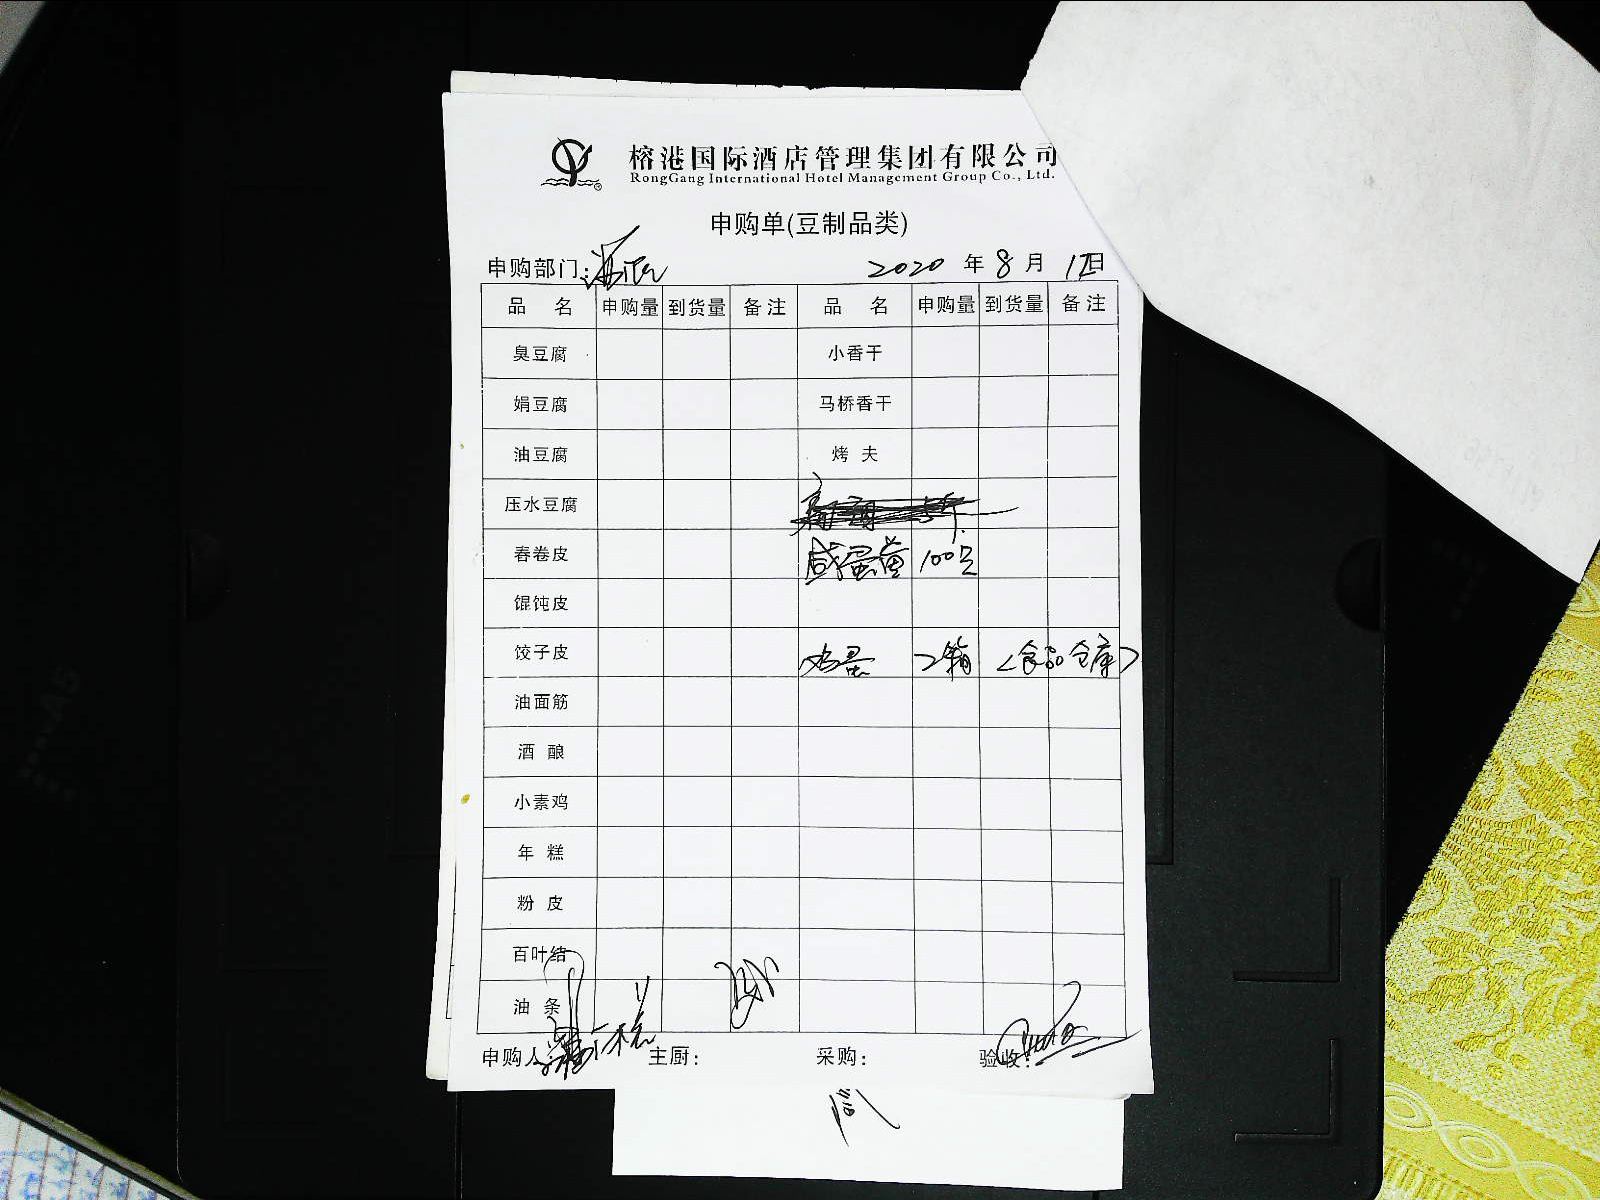 榕港国际酒店管理集团有限公司
RongGang International Hotel Management Group Co., Ltd.
申购单(豆制品类)
申购部门:
2020 年 8 月 12日
品 名 申购量 到货量 备注 品 名 申购量 到货量 备注
臭豆腐 小香干
娟豆腐 马桥香干
油豆腐 烤 夫
压水豆腐
春卷皮 咸蛋黄 100只
馄饨皮
饺子皮 鸡蛋 2箱 <食品仓库>
油面筋
酒 酿
小素鸡
年 糕
粉 皮
百叶结
油 条
申购人: 主厨: 采购: 验收: